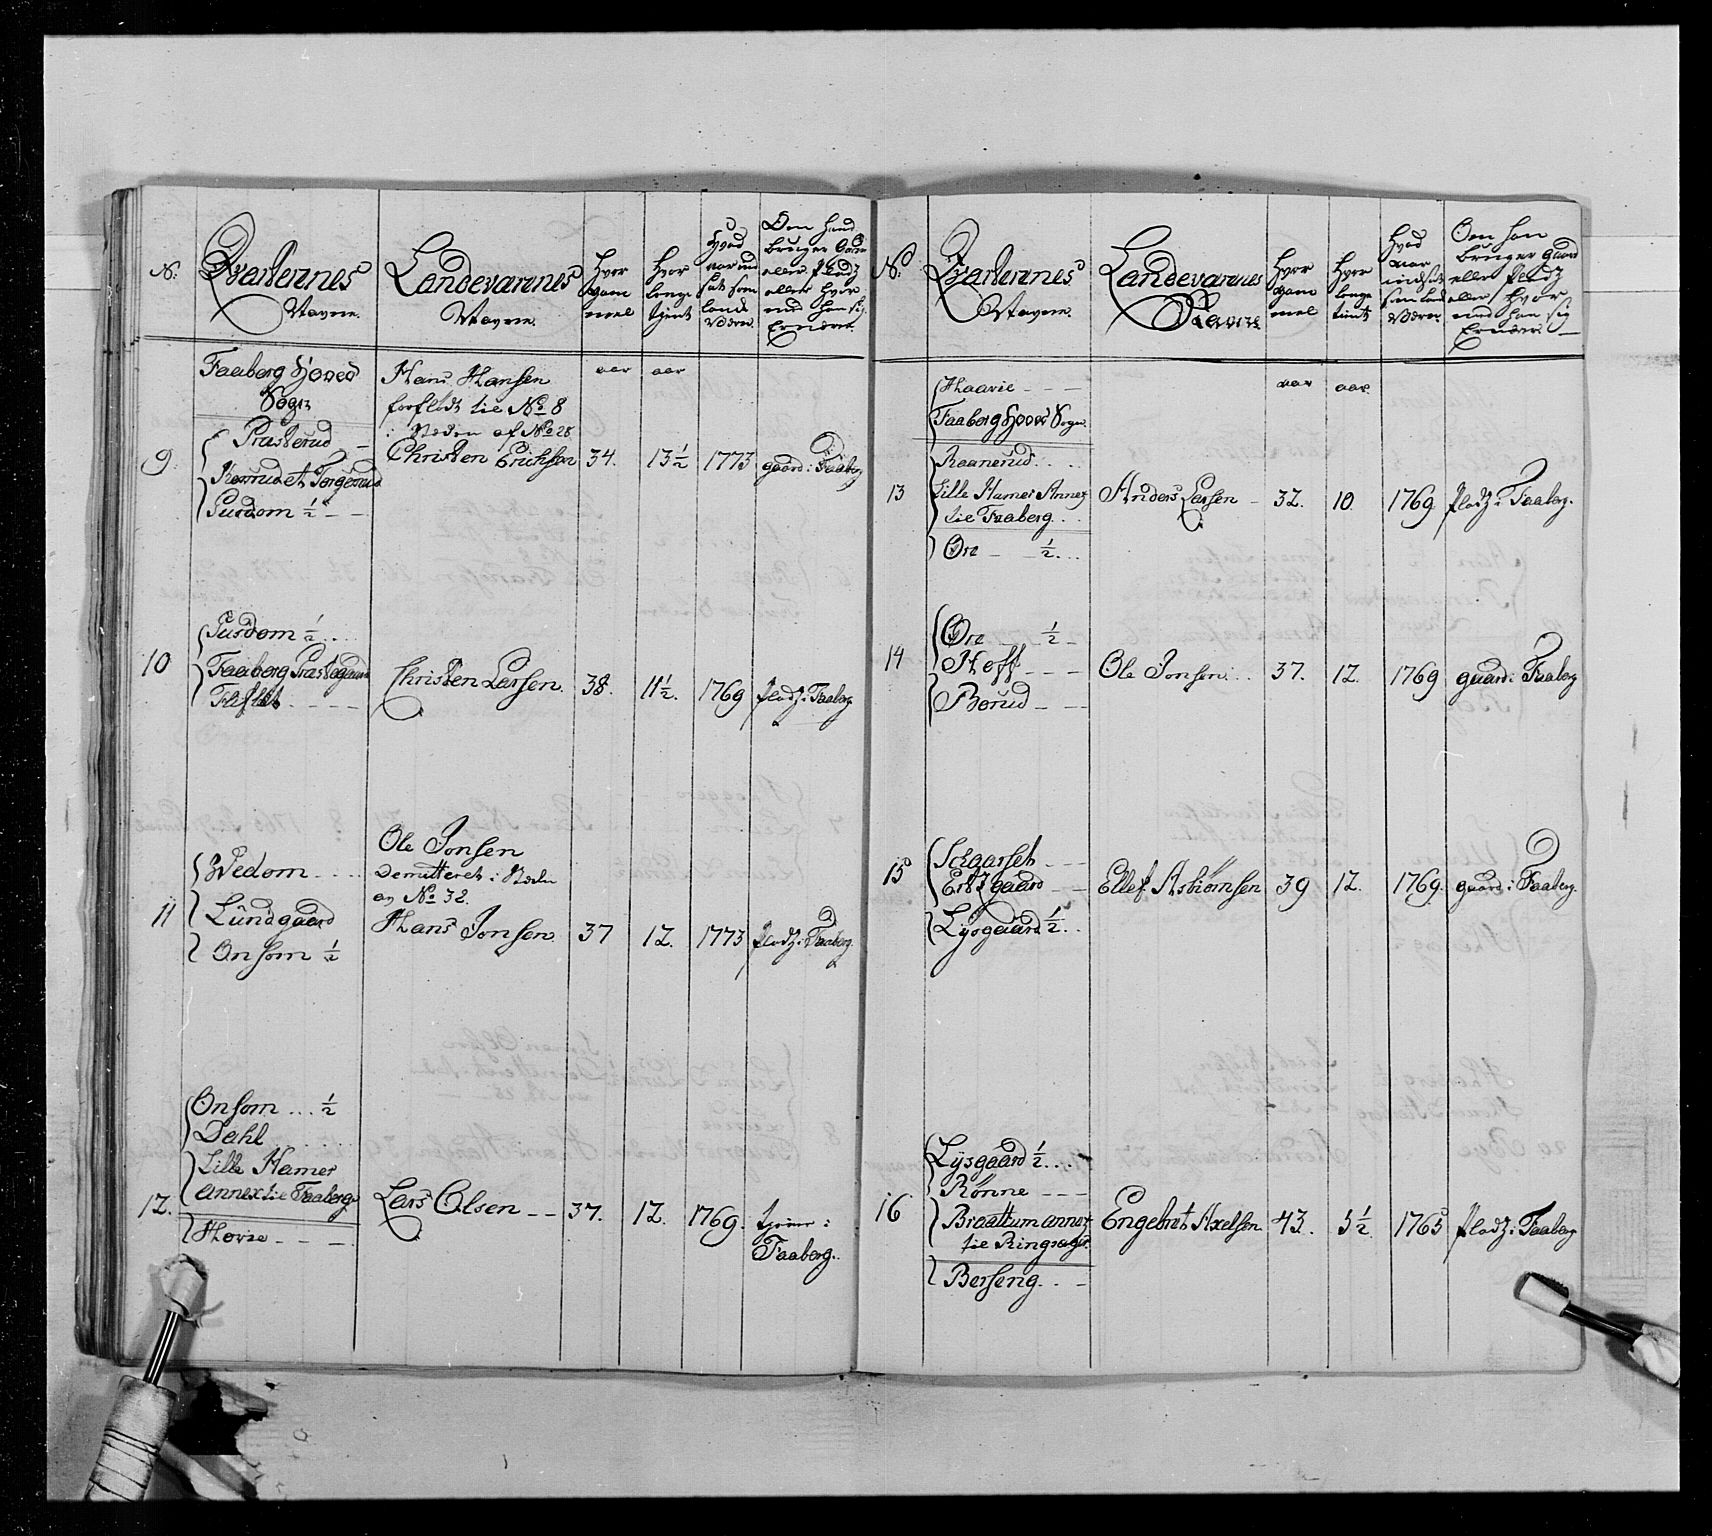 No:
Qvarterernes
Navne.
Landeværnes
Navne.
Hvor
gam
mel
Hvor
lenge
tjent
Hvad
aar ind
sat som
Land
Værn.
Om Hand
bruger Gaard
eller Pladz
eller hvor
med han sig
Ernærer.
Faaberg Hoved
Sogn
Hans Hansen
forflödt til No 8
i Steden af No 28
aar
aar
9.
Præsterud
Korrud et Torgerud
Surdom ½
Christen Erichsen
34.
13½
1773
gaard i Faaberg
10
Surdom ½
Faaberg Præstegaard
Christen Larsen.
38.
11½.
1769
Pladz i Faaberg.
11
Wedom
Lundgaard
Onsom ½
Ole Jonsen
Demitteret i Steden
av No 32.
Hans Jonsen
37
12.
1773
Pladz i Faaberg.
12.
Onsom ½
Dahl
Lille Hamer
annex til Faaberg
Hovie
Lars Olsen
37.
12.
1769.
tjener i
Faaberg.
No
Qvarterernes
Navne.
Landeværnes
Navne
Hvor
gam
mel
Hvor
lenge
tient
Hvad
aar
indsat
som Land
Værn.
Om han
bruger Gaard
eller Pladz
eller Hvor
med han sig
Ernærer.
Haavie
Faaberg Hoved Sogn.
aar
aar
13
Raanerud
Lille Hamer Annex
til Faaberg
Ore ½
Anders Larsen
32.
10.
1769
Pladz i Faaberg.
14
Ore ½
Hoff
Borud
Ole Jonsen
37.
12.
1769
gaard i Faaberg
15
Ertzgaard
Lysgaard ½
Ellef Asbiörnsen
39
12.
1769.
gaard i Faaberg.
16
Lysgaard ½
Rönne
Braattum annex
til Ringsager
Berseng
Engebret Axelsen
43.
5½.
1765
Pladz i Faaberg